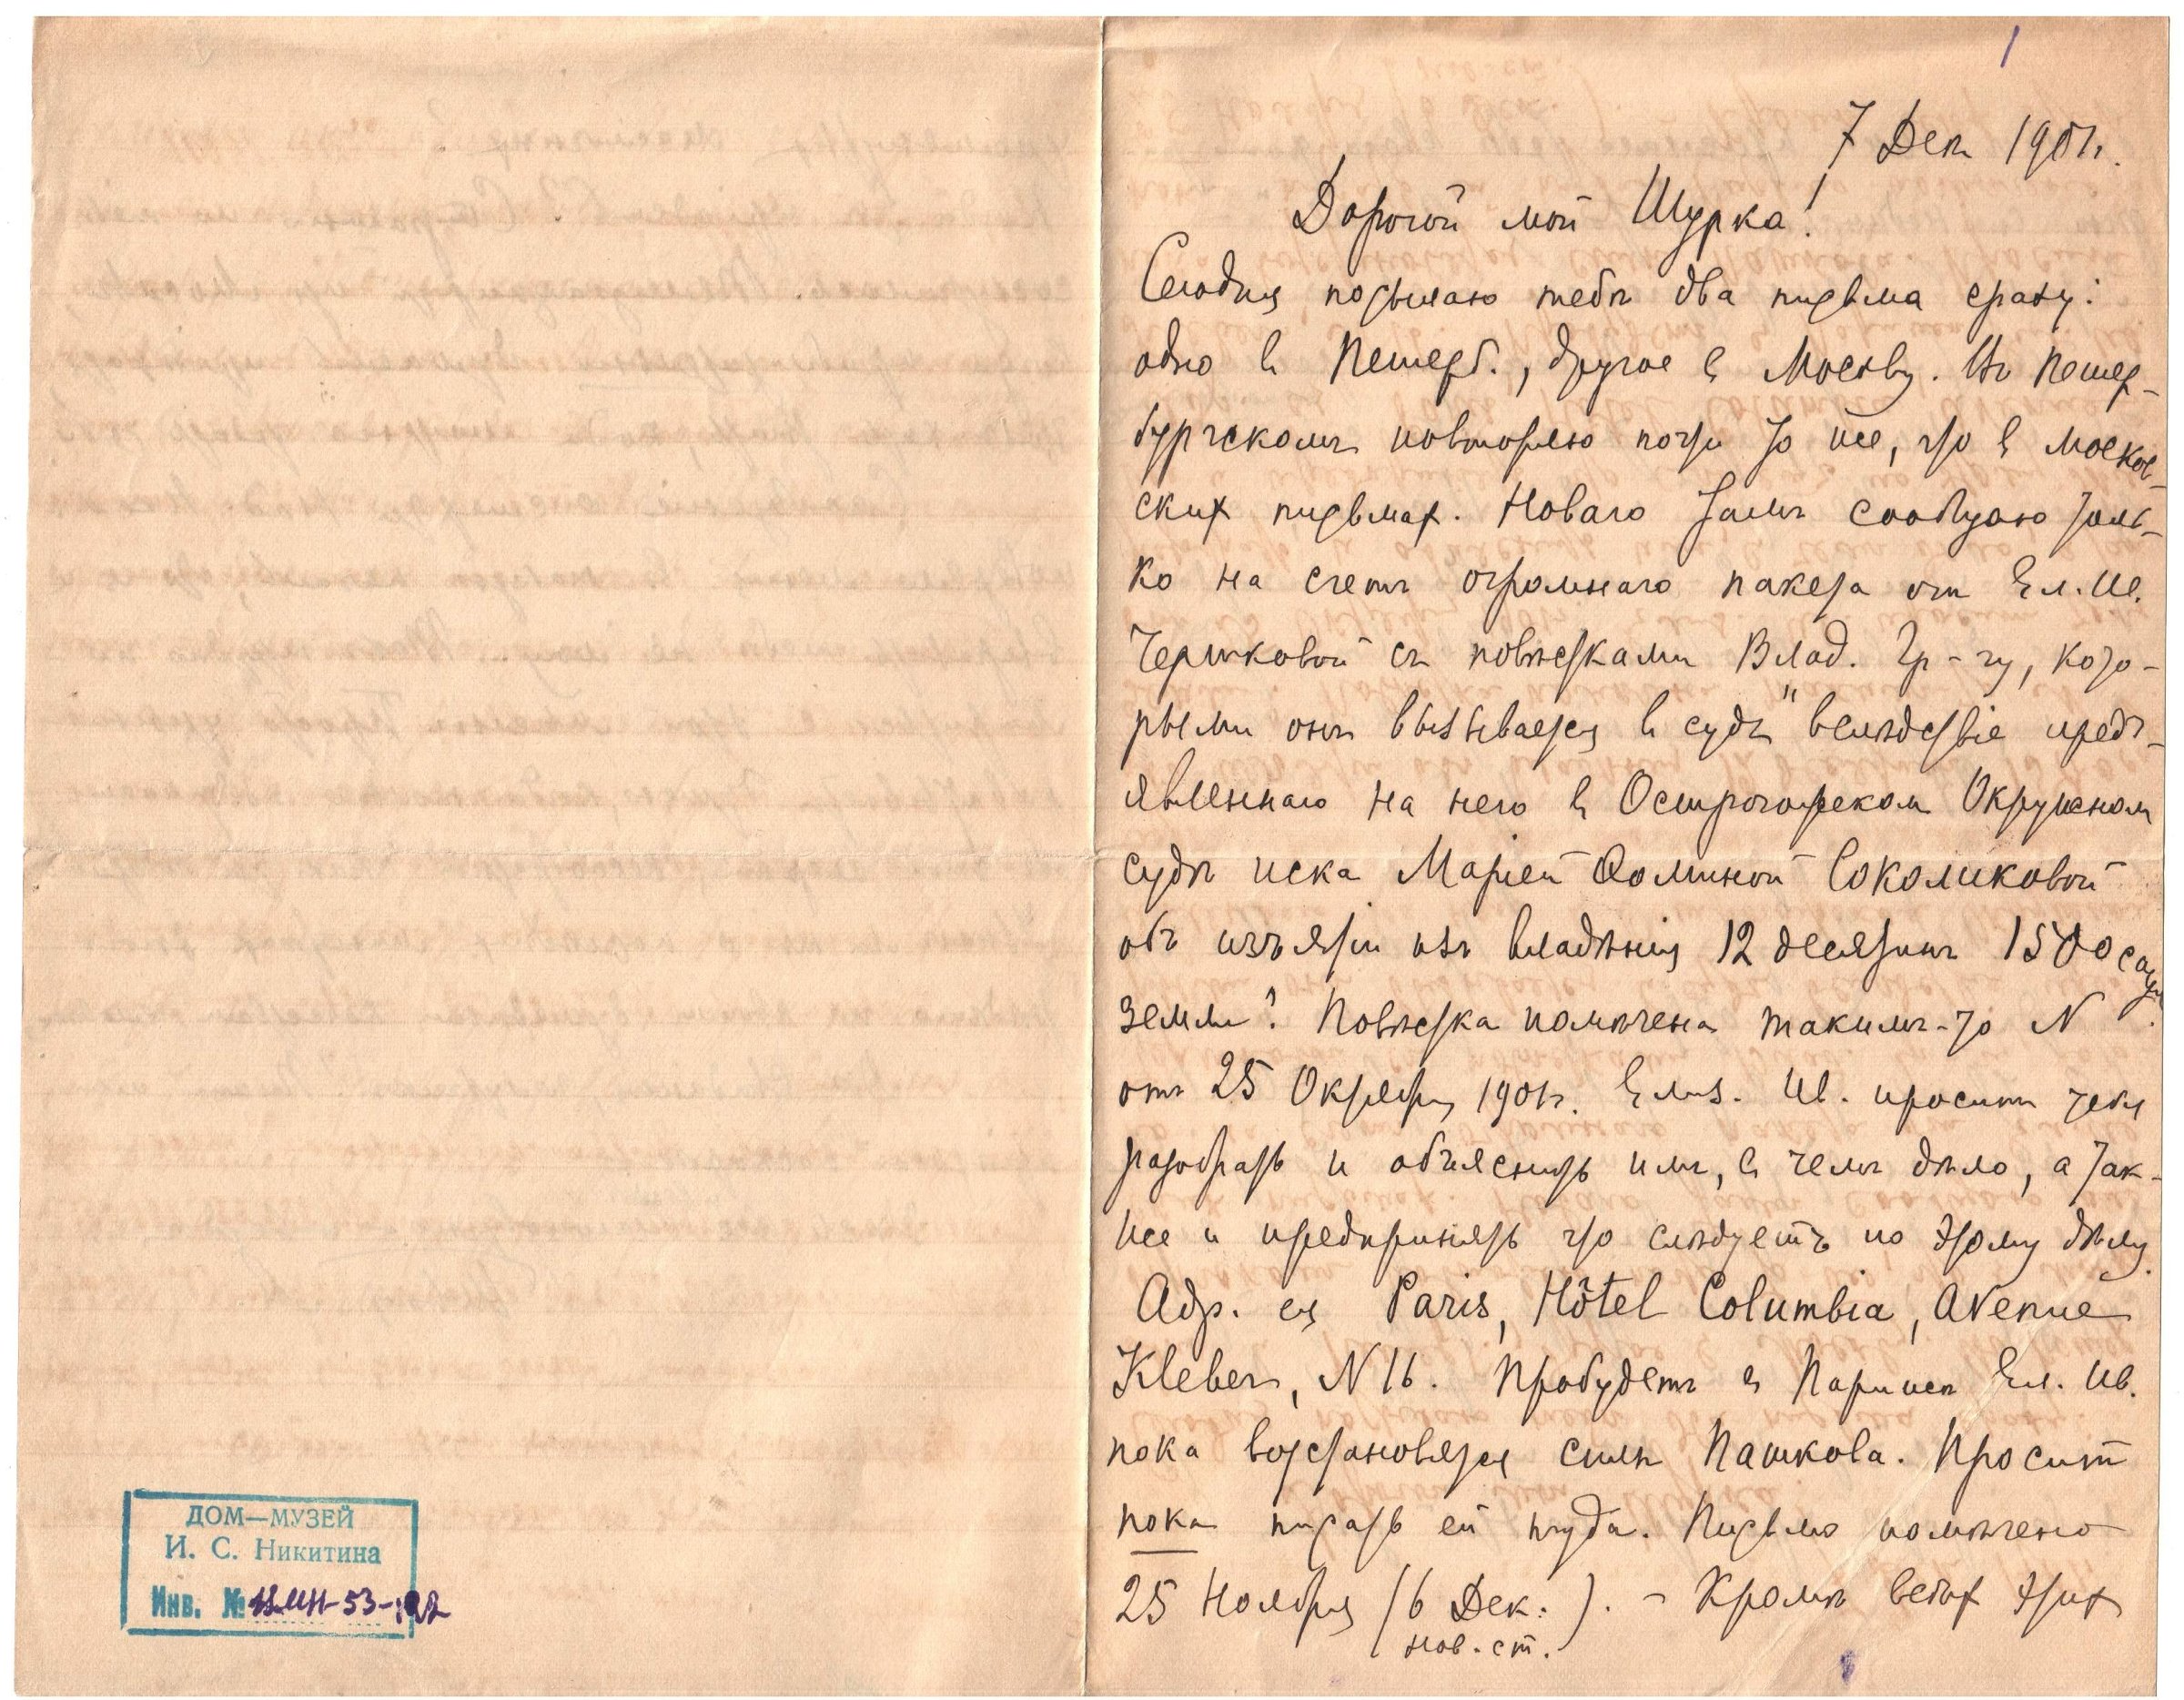 1
7 Дек 1901г.
Дорогой мой Шурка!
Сегодня посылаю тебѣ два письма сразу:
одно в Петерб., другое в Москву. Въ Петер-
бургскомъ повторяю почти то же, что в москов-
ских письмах. Новаго тамъ сообщаю толь-
ко на счетъ огромнаго пакета от Ел. Ив.
Чертковой съ повѣстками Влад. Гр-чу, кото-
рыми онъ вызывается въ судъ "вслѣдствіе предъ-
явленнаго на него в Острогожском Окружном
судѣ иска Маріей Ѳоминой Соколиковой
объ изъятіи изъ владѣнія 12 десятинъ 1500 саж.
земли". Повѣстка помѣчена такимъ-то N
отъ 25 Октября 1901г. Елиз. Ив. проситъ тебя
разобрать и объяснить имъ, в чемъ дѣло, а так-
же и предпринять что слѣдуетъ по этому дѣлу.
Адр. ея Paris, Hôtel Columbia, Avenue
Kleber, N 16. Пробудетъ в Парижѣ Ел. Ив.
пока возстановятся силы Пашкова. Просит
пока писать ей туда. Письмо помѣчено
25 Ноября (6 Дек. ). - Кромѣ всѣх этих
нов. ст.
ДОМ—МУЗЕЙ
И. С. Никитина
Инв. №